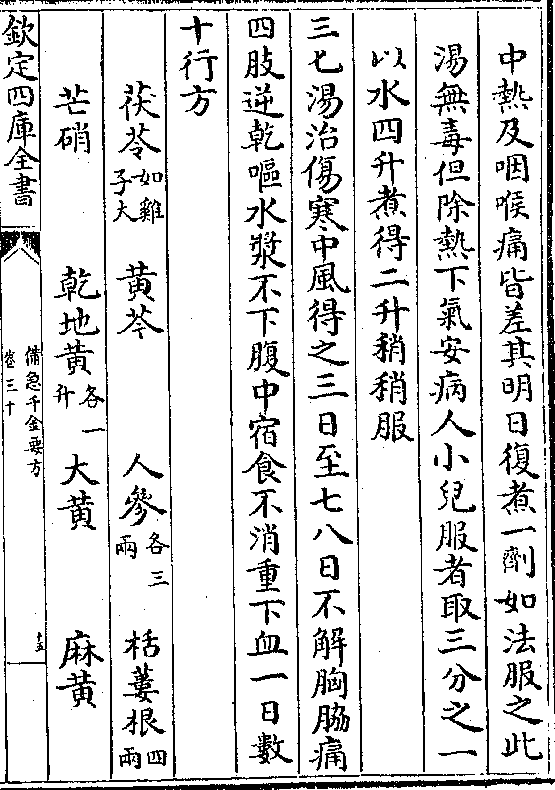 中熱及咽喉痛皆差其明日復煮一劑如法服之此
湯無毒但除熱下氣安病人小兒服者取三分之一
以水四升煮得二升稍稍服
三七湯治傷寒中風得之三日至七八日不解胸脇痛
四肢逆乾嘔水漿不下腹中宿食不消重下血一日數
十行方
茯苓如雞子大 黄芩 人參各三兩 栝蔞根四兩
芒硝 乾地黄各一升 大黄 麻黄
欽定四庫全書
備急千金要方
卷三十
十五